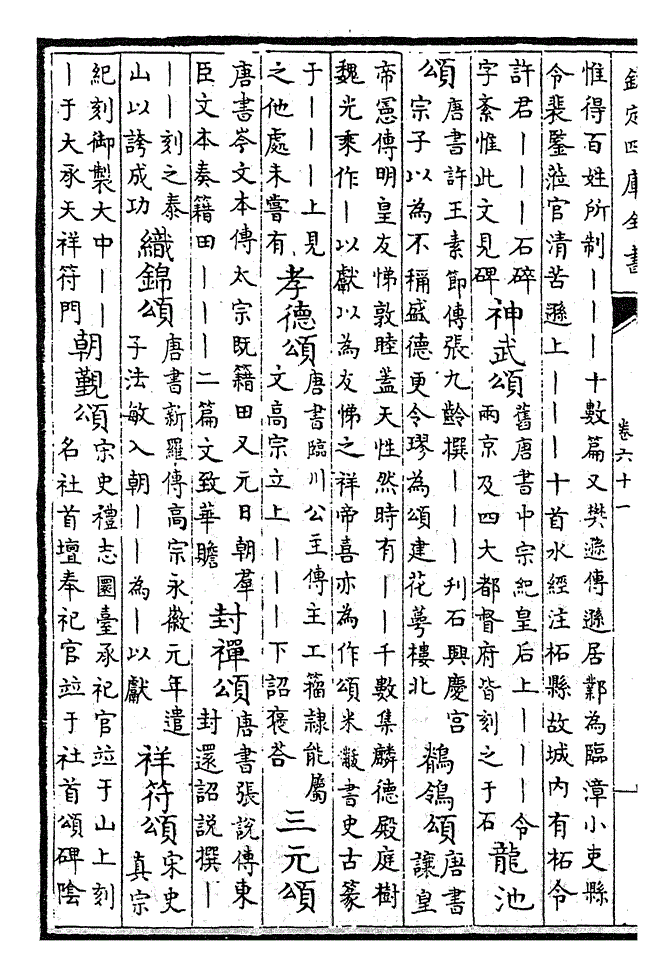 欽定四庫全書
卷六十一
惟得百姓所制｜｜｜十數篇又樊遜傳遜居鄴為臨漳小吏縣
令裴鑒蒞官清苦遜上｜｜｜十首水經注柘縣故城內有柘令
許君｜｜｜石碎
字紊惟此文見碑
神武頌
舊唐書中宗紀皇后上｜｜｜令
兩京及四大都督府皆刻之于石
龍池
頌
唐書許王素節傳張九齡撰｜｜｜刋石興慶宫
宗子以為不稱盛德更令璆為頌建花萼樓北
鶺鴒頌
唐書
讓皇
帝憲傳明皇友悌敦睦蓋天性然時有｜｜千數集麟德殿庭樹
魏光乘作｜以獻以為友悌之祥帝喜亦為作頌米黻書史古篆
于｜｜｜上見
之他處未嘗有
孝德頌
唐書臨川公主傳主工籀隸能屬
文高宗立上｜｜｜下詔褒答
三元頌
唐書岑文本傳太宗既籍田又元日朝羣
臣文本奏籍田｜｜｜二篇文致華贍
封禪頌
唐書張說傳東
封還詔說撰｜
｜｜刻之泰
山以誇成功
織錦頌
唐書新羅傳高宗永徽元年遣
子法敏入朝｜｜為｜以獻
祥符頌
宋史
真宗
紀刻御製大中｜｜
｜于大承天祥符門
朝覲頌
宋史禮志圜臺承祀官竝于山上刻
名社首壇奉祀官竝于社首頌碑陰